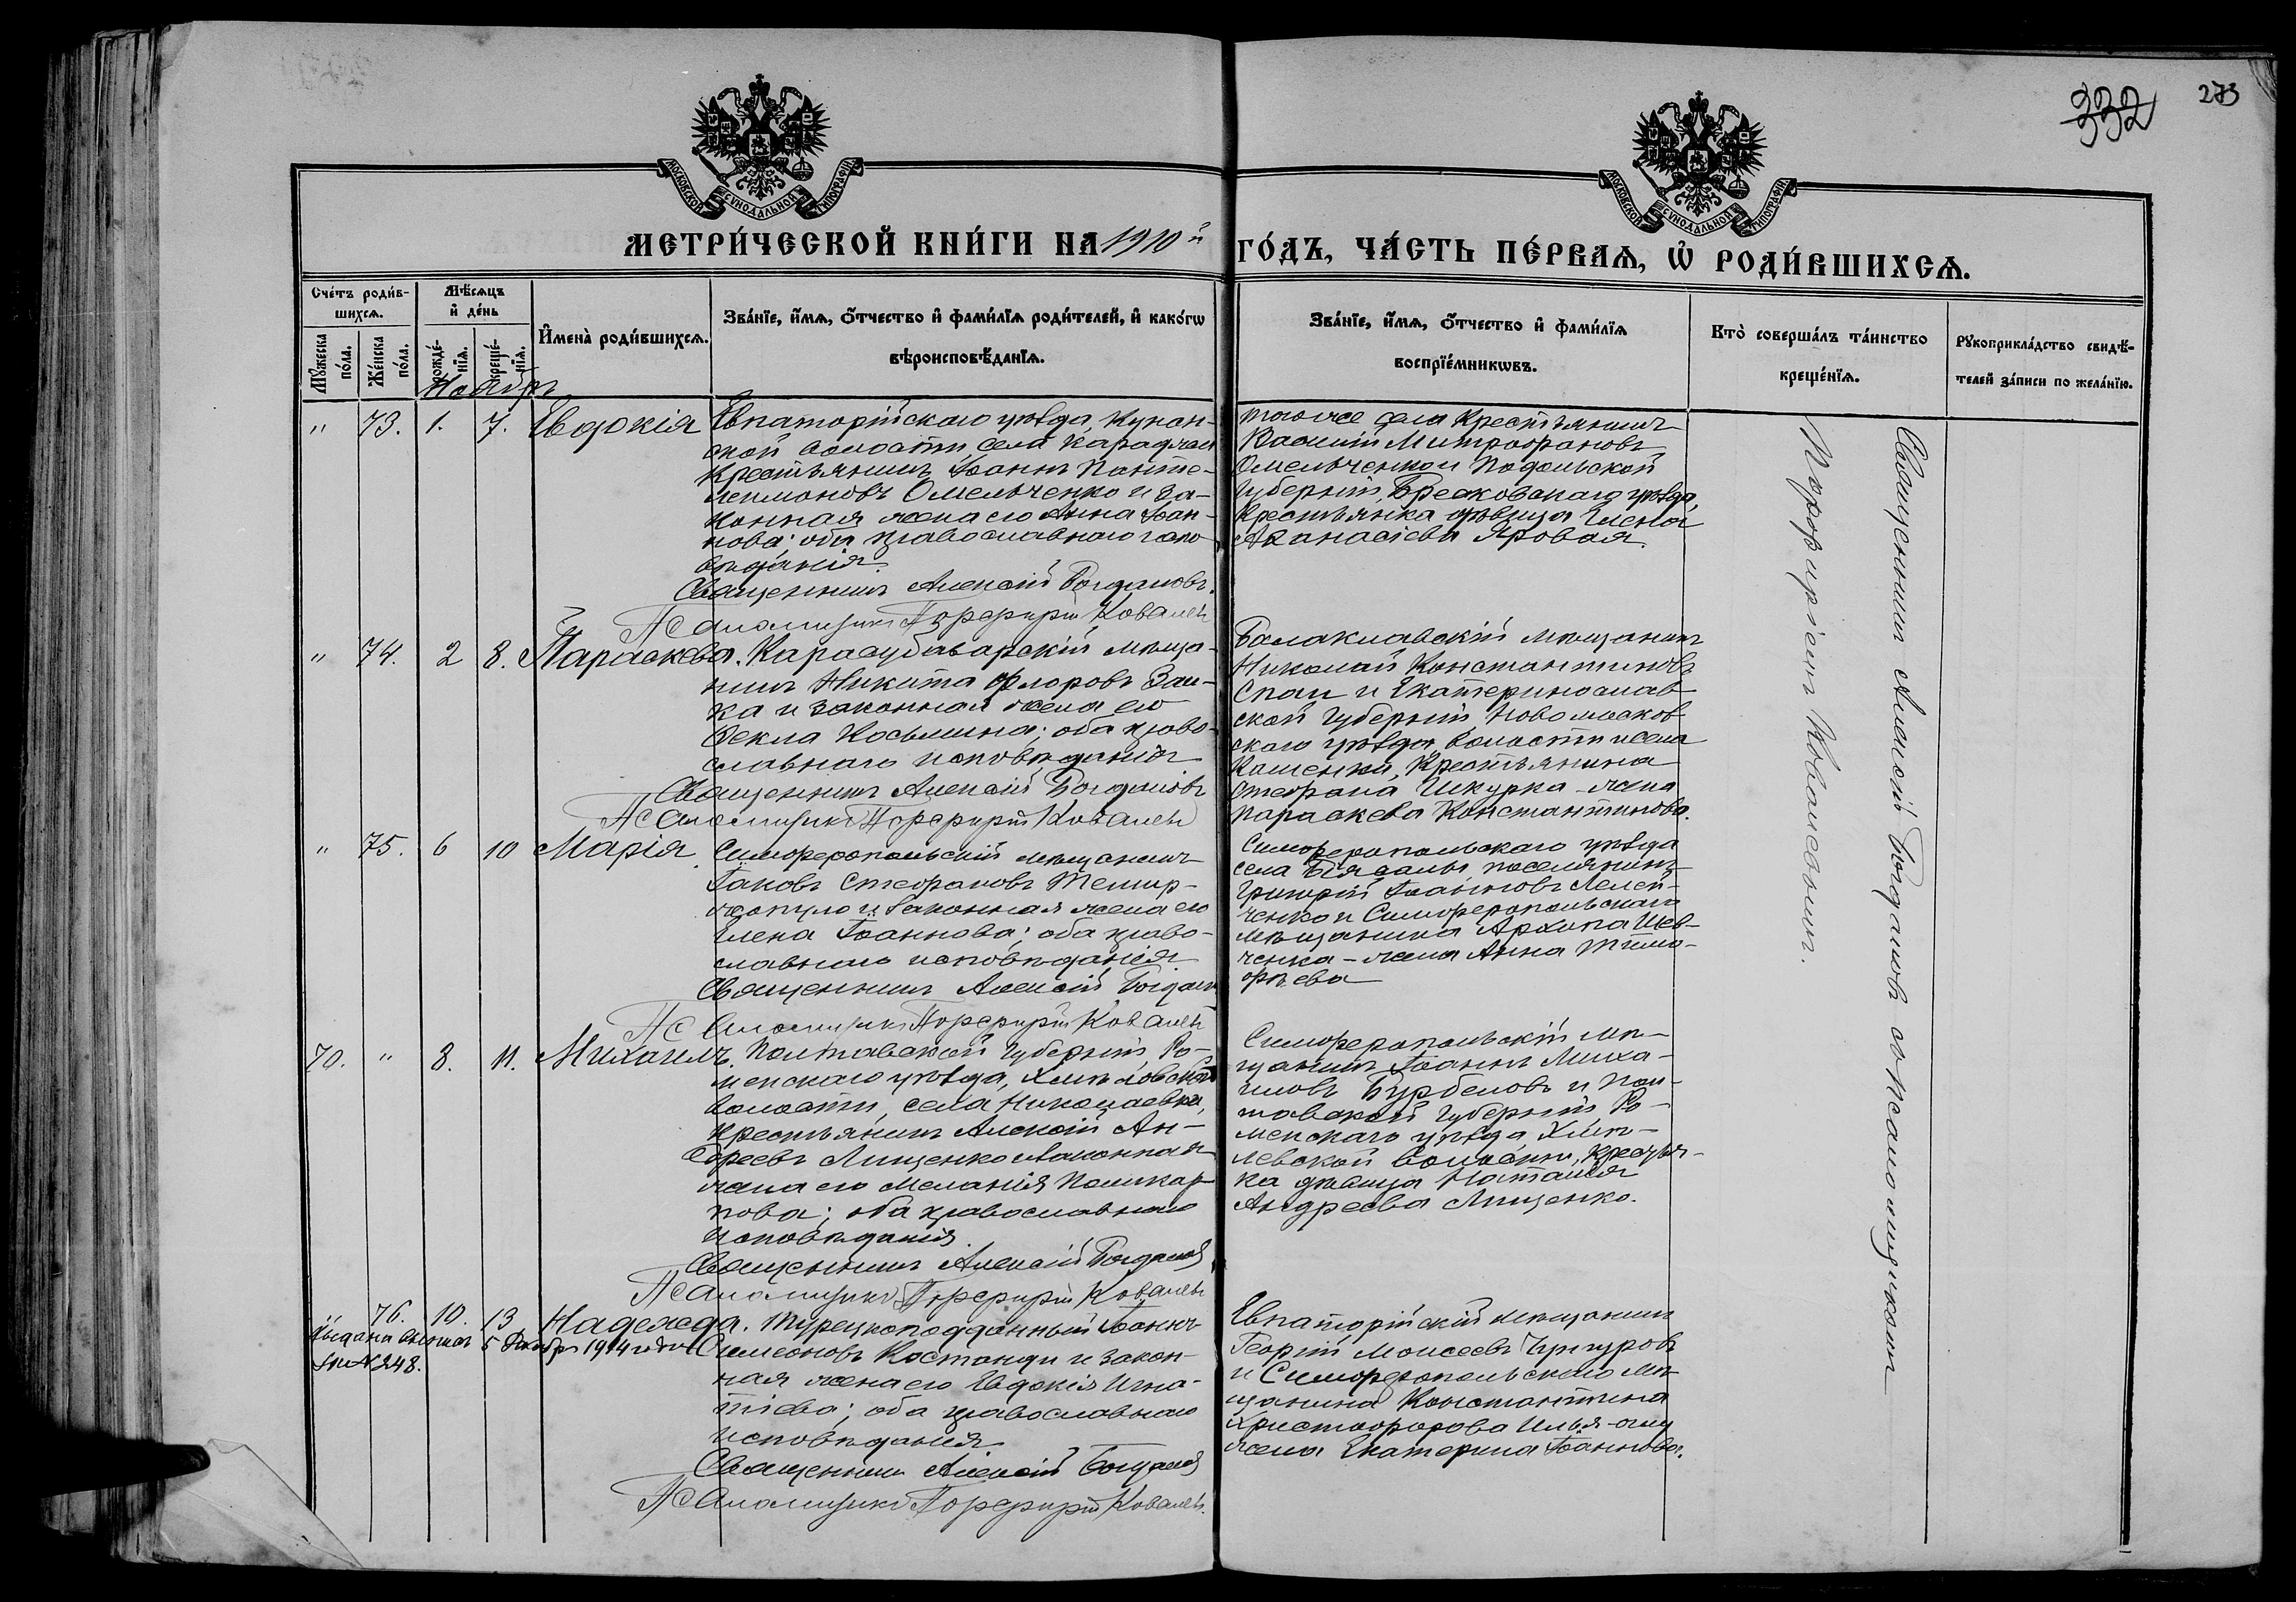 332 273
МОСКОВСКОЙ СѴНОДАЛЬНОЙ ТИПОГРАФІИ
МОСКОВСКОЙ СѴНОДАЛЬНОЙ ТИПОГРАФІИ
МЕТРИ́ЧЕСКОЙ КНИ́ГИ НА 1910й ГО́ДЪ, ЧА́СТЬ ПЕ́РВАѦ, Ѡ РОДИ́ВШИХСѦ.
Сче́тъ роди́в-
шихсѧ.
Мꙋжеска по́ла.
Же́нска по́ла.
Мѣ́сѧцъ
и҆ де́нь
рожде́-
нїѧ.
креще́-
нїѧ.
И҆мена̀ роди́вшихсѧ.
Зва́нїе, и҆́мѧ, ѻ҆́тчество и҆ фами́лїѧ роди́телей, и҆ како́гѡ
вѣроисповѣ́данїѧ.
Зва́нїе, и҆́мѧ, ѻ҆́тчество и҆ фами́лїѧ
воспрїе́мникѡвъ.
Кто̀ соверша́лъ та́инство
креще́нїѧ.
Рꙋкоприкла́дство свидѣ́-
телей за́писи по жела́нїю.
Ноябрь
" 73. 1. 7. Евдокія
Евпаторійскаго уѣзда, Кунан-
ской волости, села Караджан
Крестьянинъ Іоаннъ Панте-
леимоновъ Омельченко и за-
конная жена его Анна Іоан-
нова; оба православнаго испо-
вѣданія.
Священникъ Алексій Богдановъ.
Псаломщикъ Порфирій Ковалевъ
того же села Крестьянинъ
Василій Митрофановъ
Омельченко и Подольской
Губерніи,
Крестьянка дѣвица Елена
Аѳанасіева Яровая.
" 74. 2 8. Параскева.
Карасубазарскій мѣща-
нинъ Никита Флоровъ Заи-
ка и законная жена его
Ѳекла Косьмина; оба право-
славнаго исповѣданія
Священникъ Алексій Богдановъ
Псаломщикъ Порфирій Ковалевъ
Балаклавскій мѣщанинъ
Николай Константиновъ
Спаи и Екатеринослав-
ской Губерніи, Новомосков-
скаго уѣзда, волости и села
Каменки, Крестьянина
Стефана Шкурка - жена
Параскева Константинова.
" 75. 6 10 Марія
Симферопольскій мѣщанинъ
Іаковъ Стефановъ Темир-
джопуло и законная жена его
Елена Іоаннова; оба право-
славнаго исповѣданія.
Священникъ Алексій Богданъ
Псаломщикъ Порфирій Ковалевъ
Симферопольскаго уѣзда
села Біясалы поселянинъ
Григорій Іоанновъ Лелей-
ченко и Симферопольскаго
мѣщанина Архипа Шев-
ченка - жена Анна Тимо-
фѣева
70. " 8. 11. Михаилъ.
Полтавской Губерніи, Ро-
менскаго уѣзда, Хмѣловской
волости, села Николаевка,
крестьянинъ Алексій Ан-
дреевъ Лищенко и законная
жена его Меланія Поликар-
пова; оба православнаго
исповѣданія.
Священникъ Алексій Богдановъ
Псаломщикъ Порфирій Ковалевъ
Симферопольскій мѣ-
щанинъ Іоаннъ Миха-
иловъ Бурбеловъ и Пол-
тавской Губерніи, Ро-
менскаго уѣзда, Хмѣ-
левской волости, крестьян-
ка дѣвица Наталія
Андреева Лищенко.
" 76. 10. 13 Надежда.
Выдана выпись 5 Ноября 1914 года
за № 248.
Турецкоподданный Іоаннъ
Симеоновъ Костанди и закон-
ная жена его Евдокія Игна-
тіева; оба православнаго
исповѣданія.
Священникъ Алексій Богдановъ
Псаломщикъ Порфирій Ковалевъ.
Евпаторійскій мѣщанинъ
Георгій Моисеевъ
и Симферопольскаго мѣ-
щанина Константина
Христофорова Илья-оглу
жена Екатерина Іоаннова.
Священникъ Алексій Богдановъ съ псаломщикомъ
Порфиріемъ Ковалевымъ.